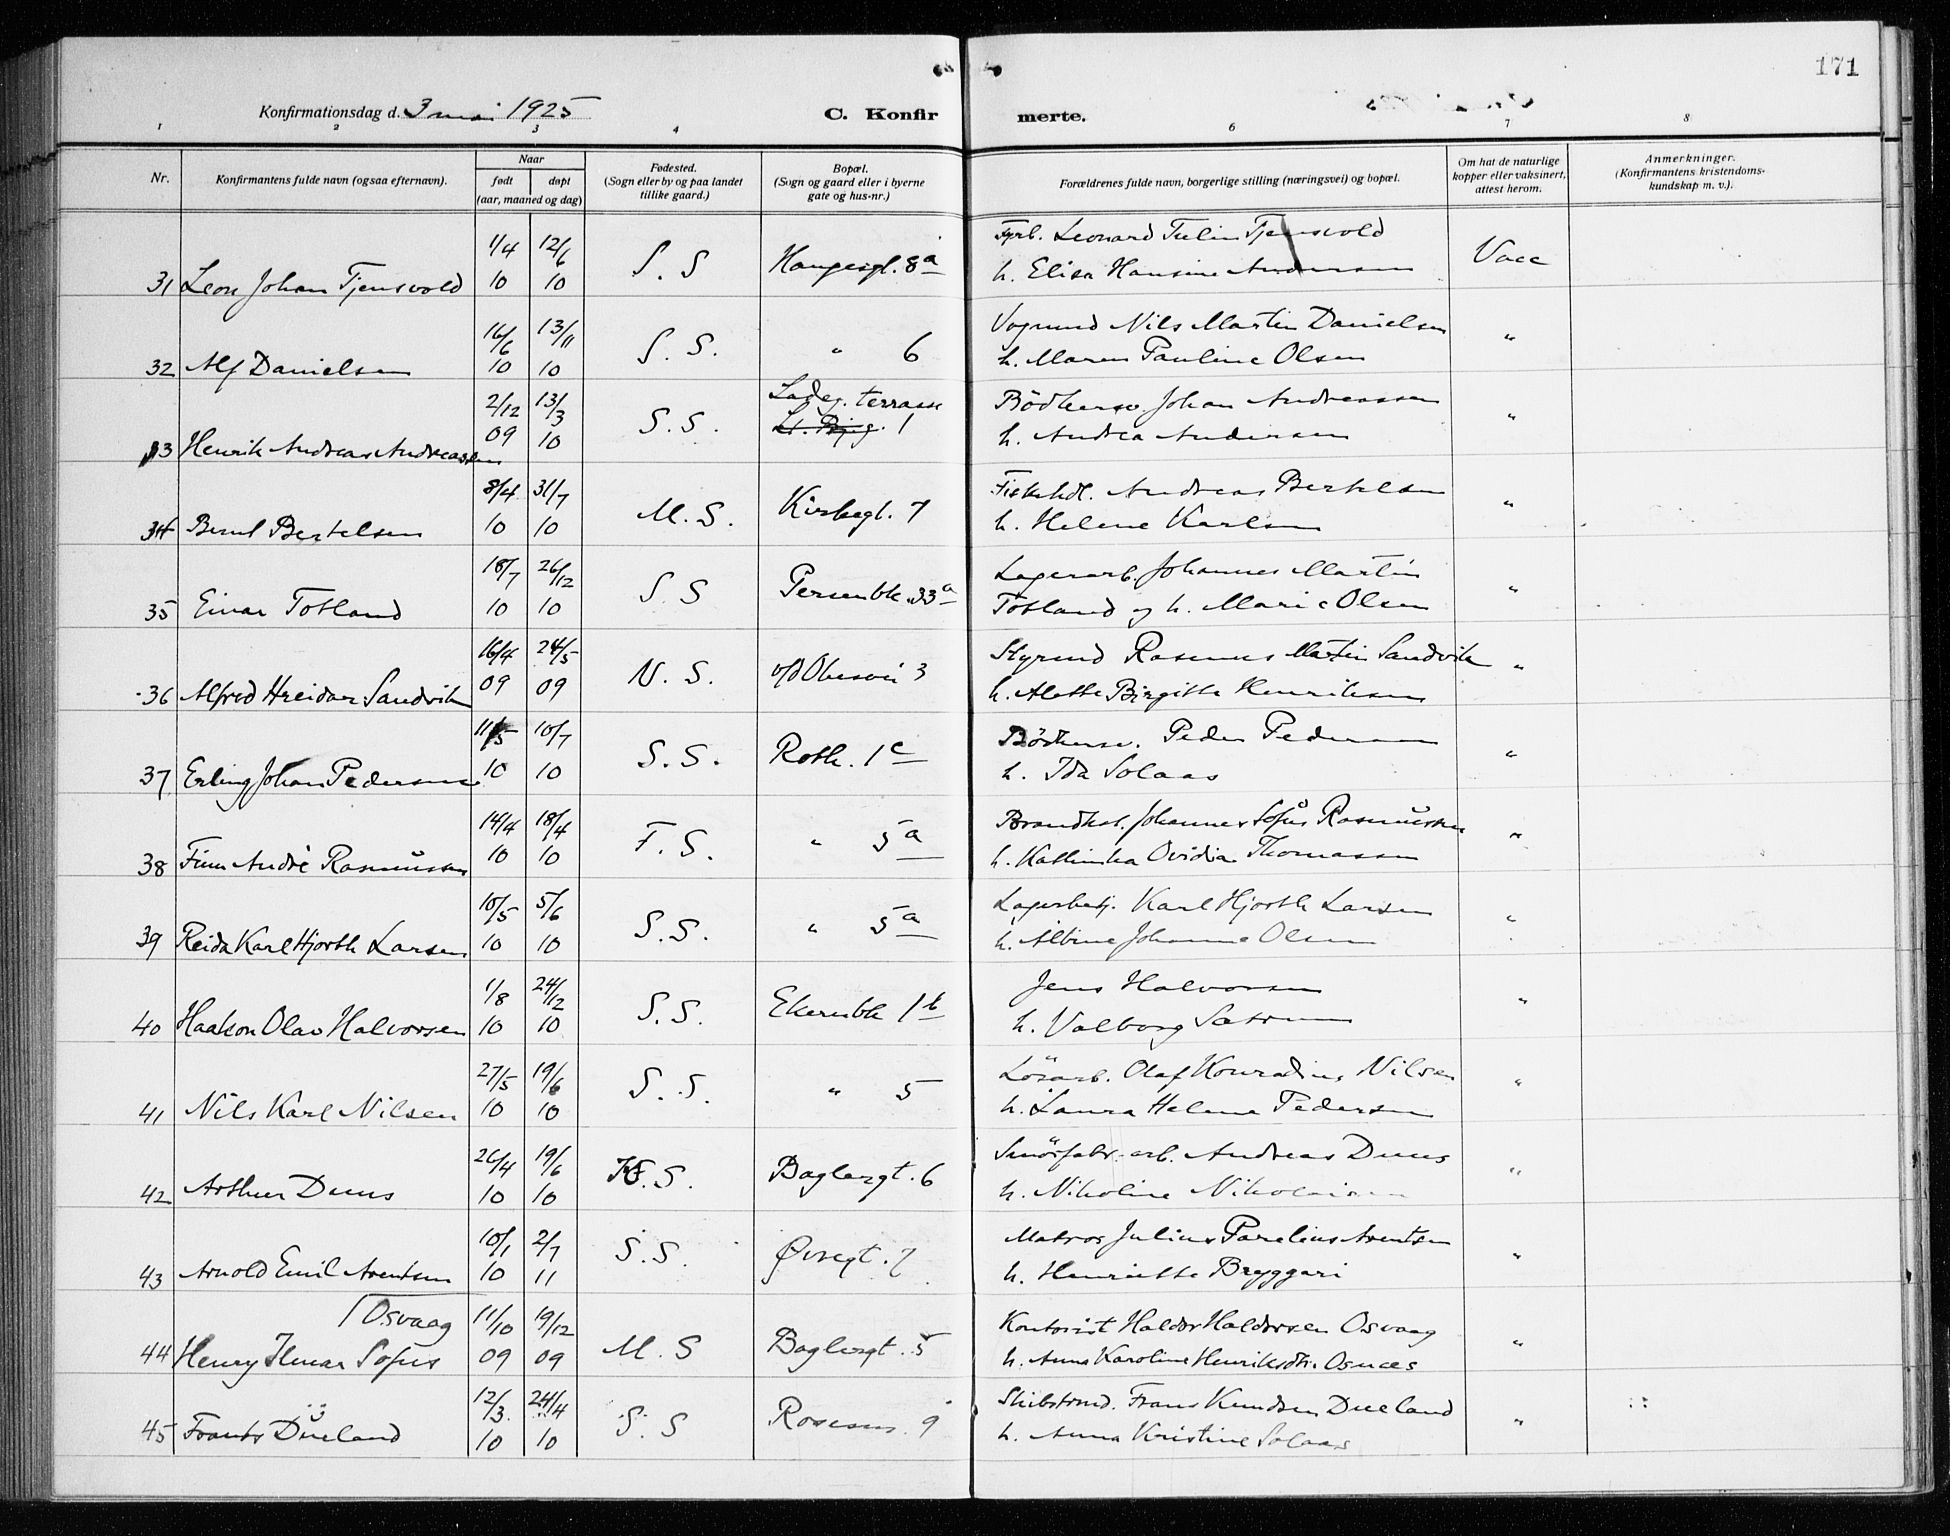 171
Konfirmationsdag d. 3 mai 1925
C. Konfirmerte.
1 2 3 4 6 7 8
Nr. Konfirmantens fulde navn (ogsaa efternavn). Naar født døpt (aar, maaned og dag) Fødested. (Sogn eller by og paa landet tillike gaard.) Bopæl. (Sogn og gaard eller i byerne gate og hus-nr.) Forældrenes fulde navn, borgerlige stilling (næringsvei) og bopæl. Om hat de naturlige kopper eller vaksinert, attest herom. Anmerkninger. (Konfirmantens kristendoms-kundskap m. v.).
31 Leon Johan Tjensvold 1/4 10 12/6 10 S. S Haugesgt. 8a Fyrb. Leonard Tulin Tjensvold
h. Elisa Hansine Andersen Vacc
32 Alf Danielsen 16/6 10 13/11 10 S. S. " 6 Vognmd Nils Martin Danielsen
h. Maren Pauline Olsen "
33 Henrik Andreas Andreassen 2/12 09 13/3 10 S. S. Ladeg. terrasse 1 Bödkersv. Johan Andreassen
h. Andrea Andersen "
34 Bernt Bertelsen 8/4 10 31/7 10 M. S. Kirkegt. 7 Fiskehdl. Andreas Bertelsen
h. Helene Karlsen "
35 Einar Totland 18/7 10 26/12 10 S. S Persenbk. 33a Lagerarb. Johannes Martin
Totland og h. Marie Olsen "
36 Alfred Hreidar Sandvik 16/4 09 24/5 09 N. S. 3 Styrmd Rasmus Martin Sandvik
h. Alette Birgitte Henriksen "
37 Erling Johan Pedersen 11/5 10 10/7 10 S. S. Roth. 1c Bödkersv. Peder Pedersen
h. Ida Solaas "
38 Finn André Rasmussen 14/4 10 18/4 10 F. S. " 5a Brandkst. Johannes Sofus Rasmussen
h. Kathinka Ovidia Thomassen "
39 Reidar Karl Hjorth Larsen 10/5 10 5/6 10 S. S. " 5a Lagerbetj. Karl Hjorth Larsen
h. Albine Johanne Olsen "
40 Haakon Olav Halvorsen 1/8 10 24/12 10 S. S. Ekrenbk 1b Jens Halvorsen
h. Valborg "
41 Nils Karl Nilsen 27/5 10 19/6 10 S. S. " 5 Lösarb. Olaf Konradius Nilsen
h. Laura Helene Pedersen "
42 Arthur Duus 26/4 10 19/6 10 S. Baglergt. 6 Smörfabr. arb. Andreas Duus
h. Nikoline Nikolaisen "
43 Arnold Emil Arentsen 10/1 10 2/7 11 S. S. Øvregt. 7 Matros Julius Parelius Arentsen
h. Henriette Bryggari "
44 Henry Ilmar Sofus Osvaag 11/10 09 19/12 09 M. S Baglergt. 5 Kontorist Haldor Haldorsen Osvaag
h. Anna Karoline Henriksdtr. Osnæs "
45 Frants Dueland 12/3 10 24/4 10 S. S Rosesm. 9 Skibstmd. Frans Knudsen Dueland
h. Anna Kristine Solaas "